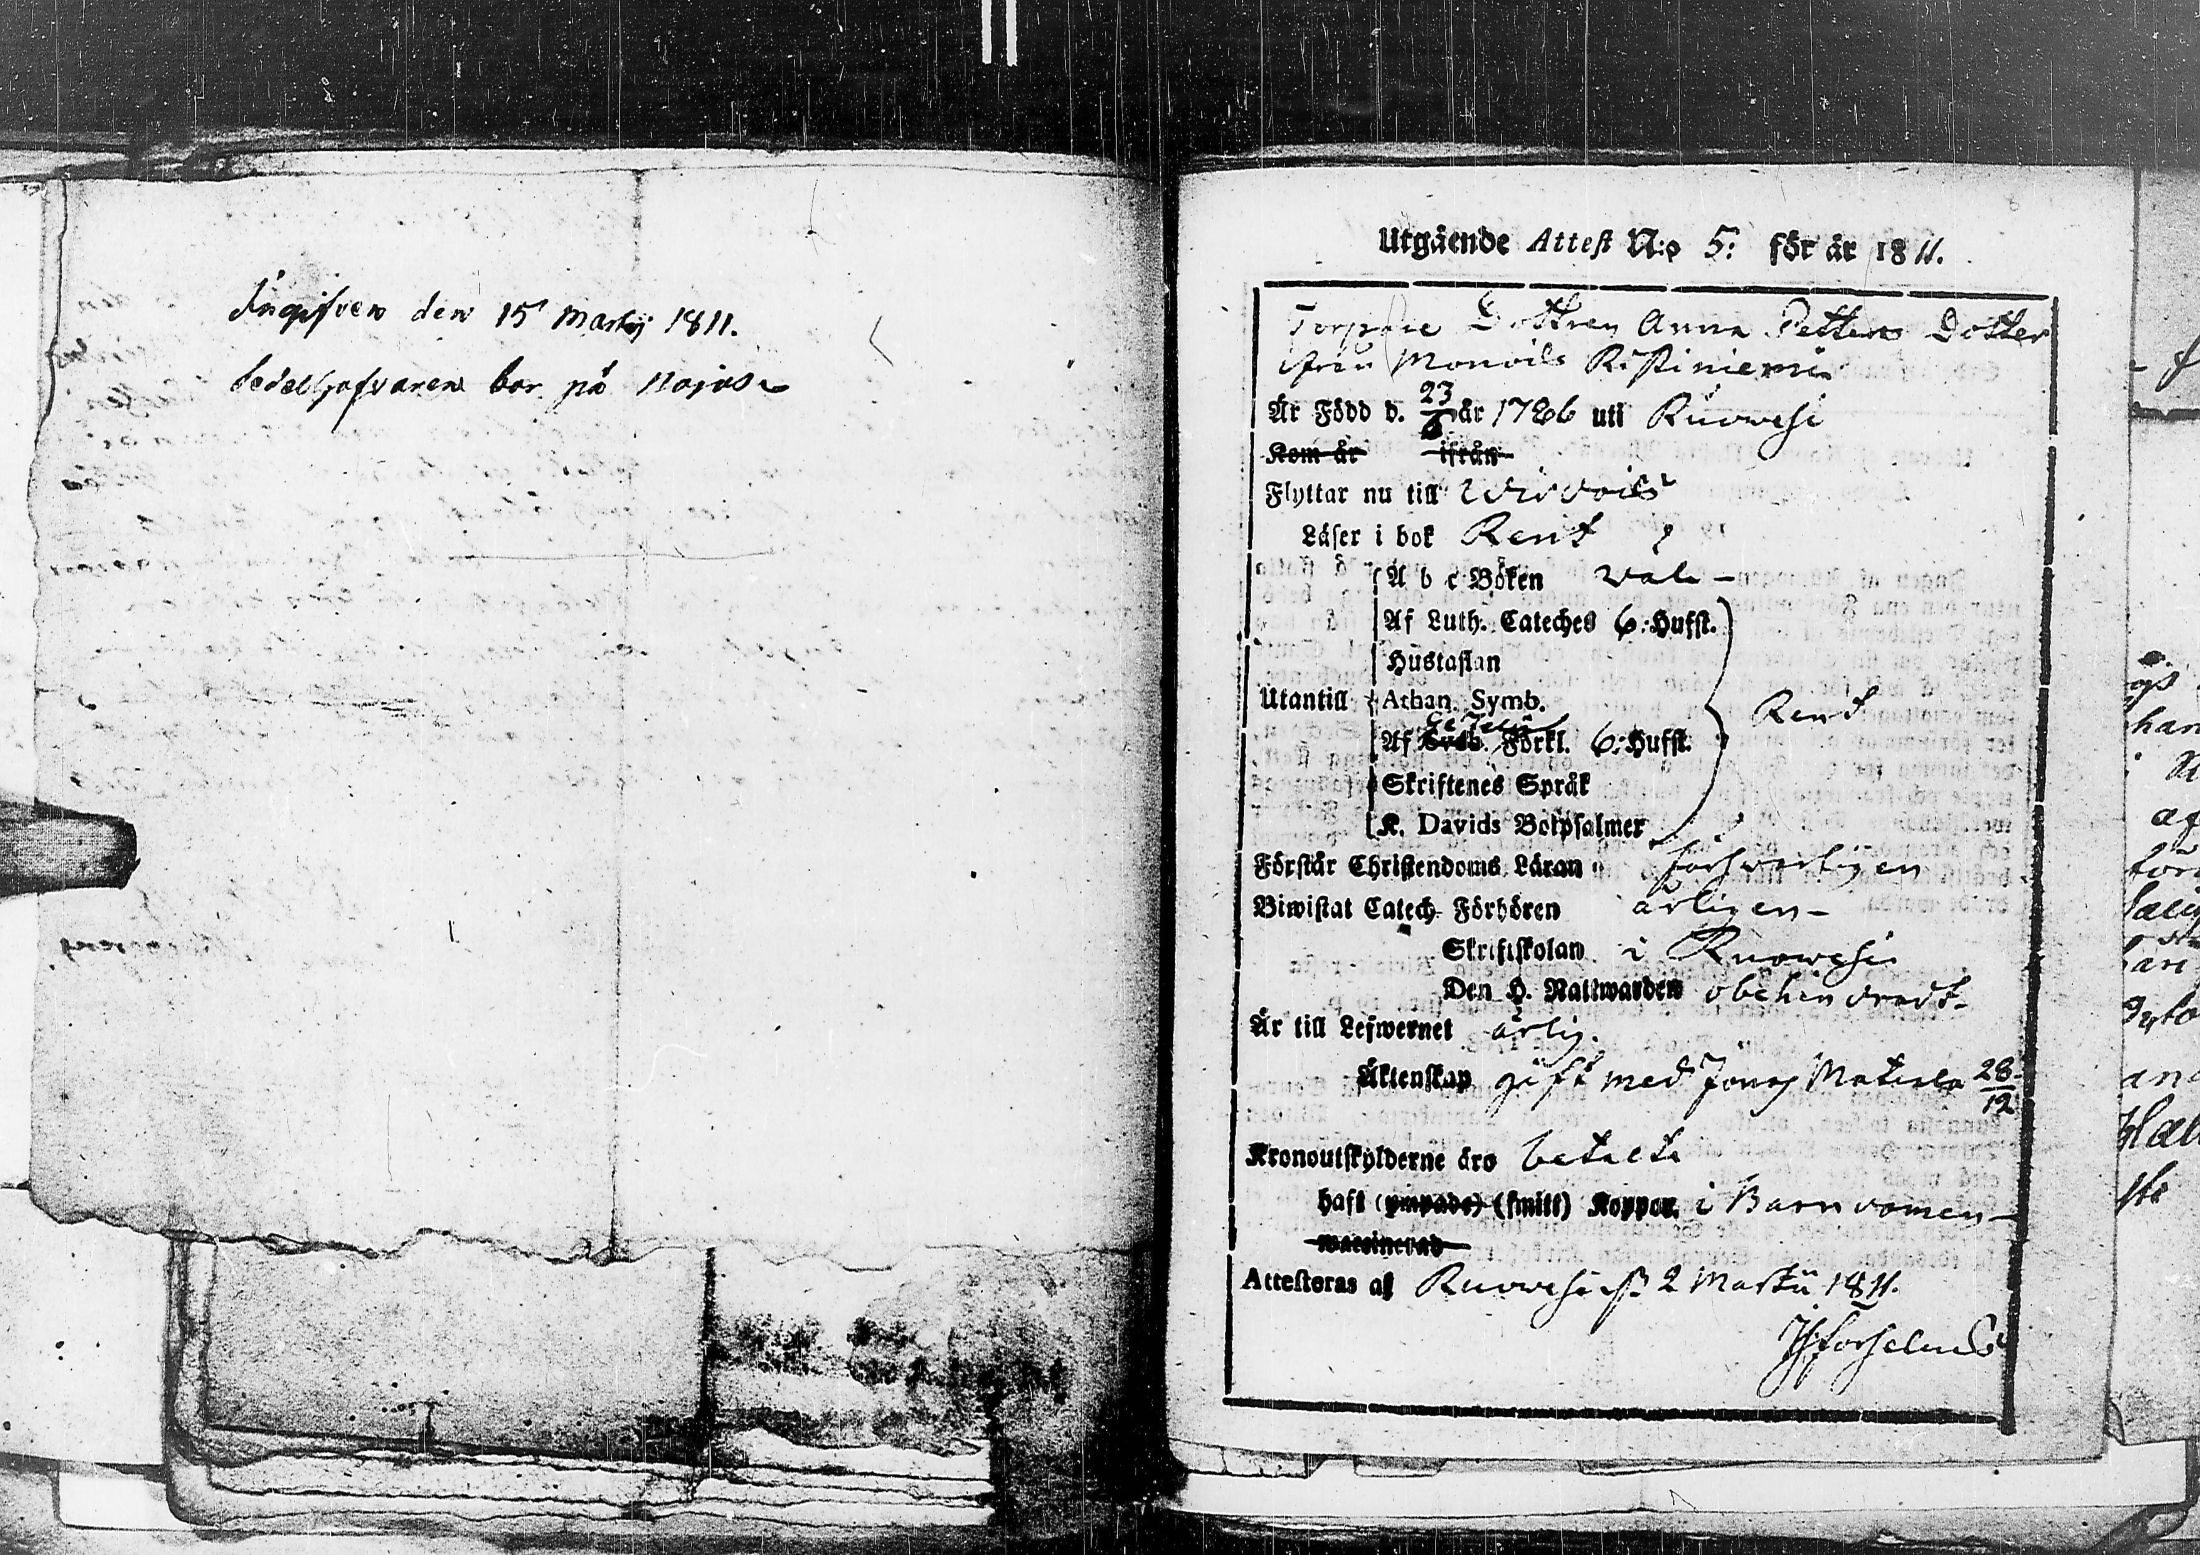 Ingifven den 15 Martij 1811.
Sedelhafvaren bor på Nojase
Utgående Attest N:o 5: för år 1811.
Torpare Dottren Anna Petters Dotter
ifrån Monoils Ristiniemi
Är Född d. 23/6 år 1786 uti Ruowesi
Kom år ifrån
Flyttar nu till Wirdois
Läser i bok Rent
A b c Boken wäl –
Af Luth. Cateches 6: Hufst.
Hustaflan
Utantill Athan. Symb.
Rent
Af Sveb. Förkl. 6: Hufst.
Skriftenes Språk
K. Davids Botpsalmer
Förstår Christendoms Läran försvarligen
Biwistat Catech. Förhören årligen –
Skriftskolan i Ruowesi
Den H. Nattwarden obehindradt –
Är till Lefwernet ärlig.
Äktenskap gift med Jonas Matsson 28/12
Kronoutskylderne äro betalte
haft (ympade) (smitt) Koppor i Barndomen –
waccinerad
Attesteras af Ruowesi d. 2 Martii 1811.